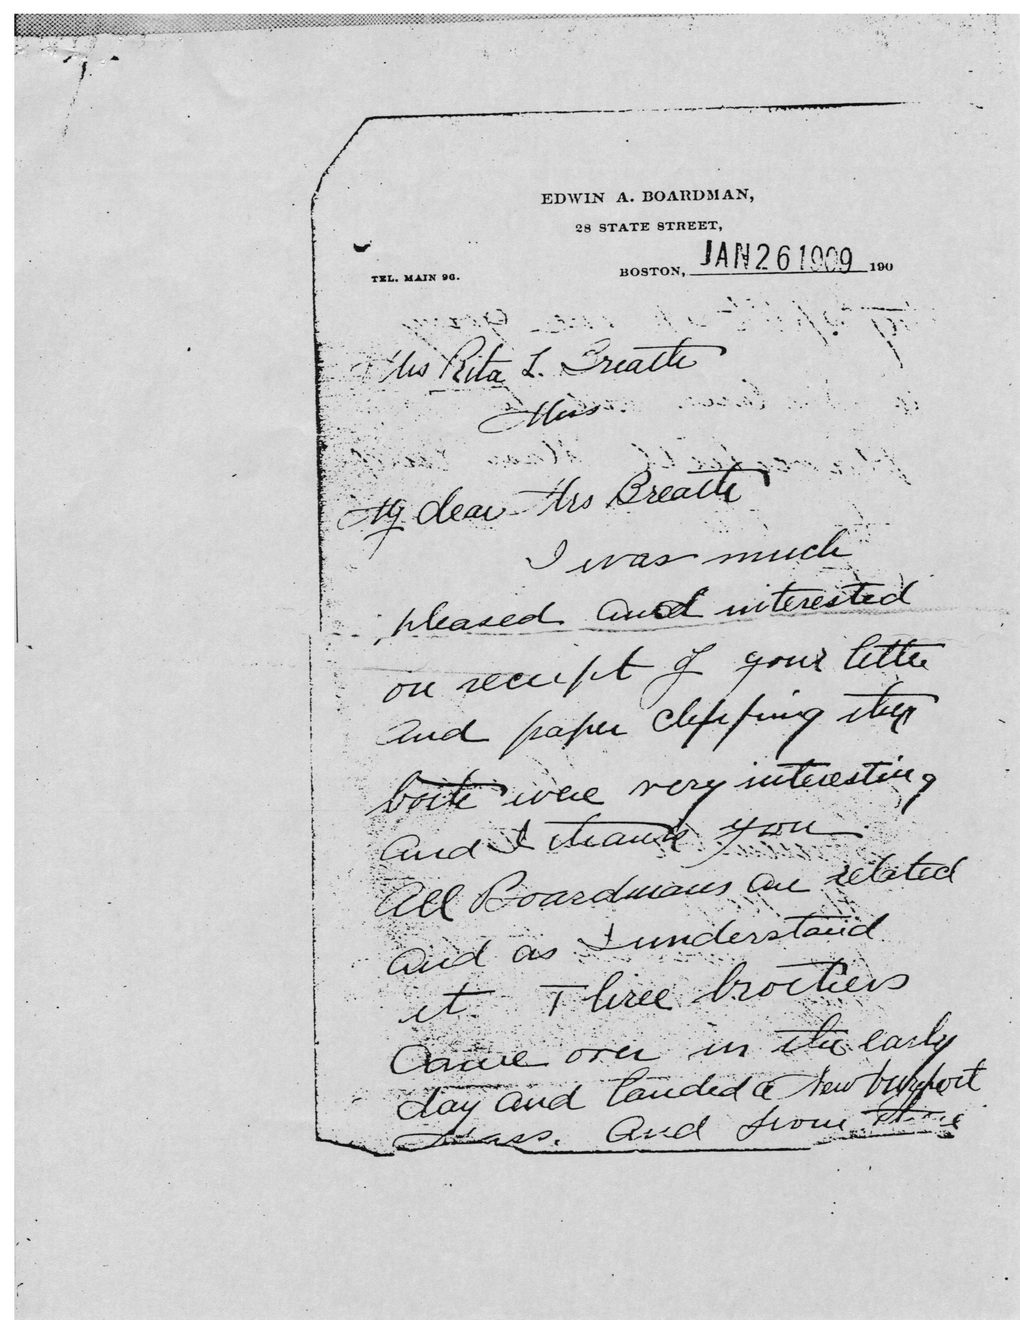 EDWIN A. BOARDMAN,
28 STATE STREET,
TEL. MAIN 96.
BOSTON, JAN 26 1909 190
Mrs Rita L. Breath
Miss.
My dear Mrs Breath
I was much
pleased and interested
on receipt of your letter
and paper clipping they
both were very interesting
and I thank you
All Boardmans are related
and as I understand
it Three brothers
Came over in the early
day and landed a Newburyport
Mass. And from